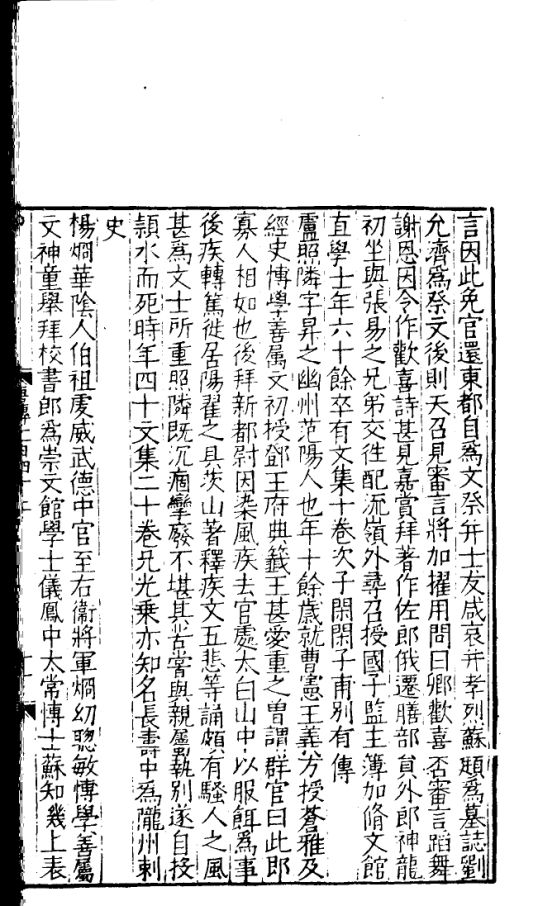 言因此免官還東都自為文祭幷士友咸哀幷孝烈蘇頲為墓誌劉
允濟為祭文後則天召見審言將加擢用問曰卿歡喜否審言蹈舞
謝恩因令作歡喜詩甚見嘉賞拜著作佐郎俄遷膳部員外郎神龍
初坐與張易之兄弟交徃配流嶺外尋召授國子監主簿加脩文館
直學士年六十餘卒有文集十卷次子閑閑子甫別有傳
盧照隣字昇之幽州范陽人也年十餘歲就曹憲王義方授蒼雅及
經史愽學善屬文初授鄧王府典籤王甚愛重之曽謂群官曰此即
寡人相如也後拜新都尉因染風疾去官處太白山中以服餌為事
後疾轉篤徙居陽翟之具茨山著釋疾文五悲等誦頗有騷人之風
甚為文士所重照隣既沉痼攣廢不堪其苦嘗與親屬執別遂自投
潁水而死時年四十文集二十卷兄光乗亦知名長壽中為隴州刺
史
楊烱華陰人伯祖虔威武德中官至右衞將軍烱幼聰敏愽學善屬
文神童舉拜校書郎為崇文館學士儀鳳中太常愽士蘇知幾上表